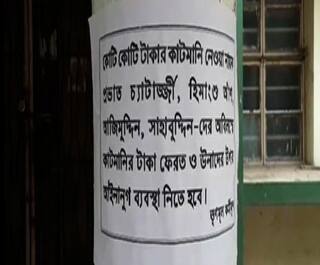 কোটি কোটি টাকার কাটমানি নেওয়া
প্রভাত চ্যাটার্জ্জী, হিমাংশু
আজিমুদ্দিন, সাহাবুদ্দিন-দের অবিলম্বে
কাটমানির টাকা ফেরত ও উনাদের উপর
আইনানুগ ব্যবস্থা নিতে হবে।
তৃণমূল কর্মীবৃন্দ